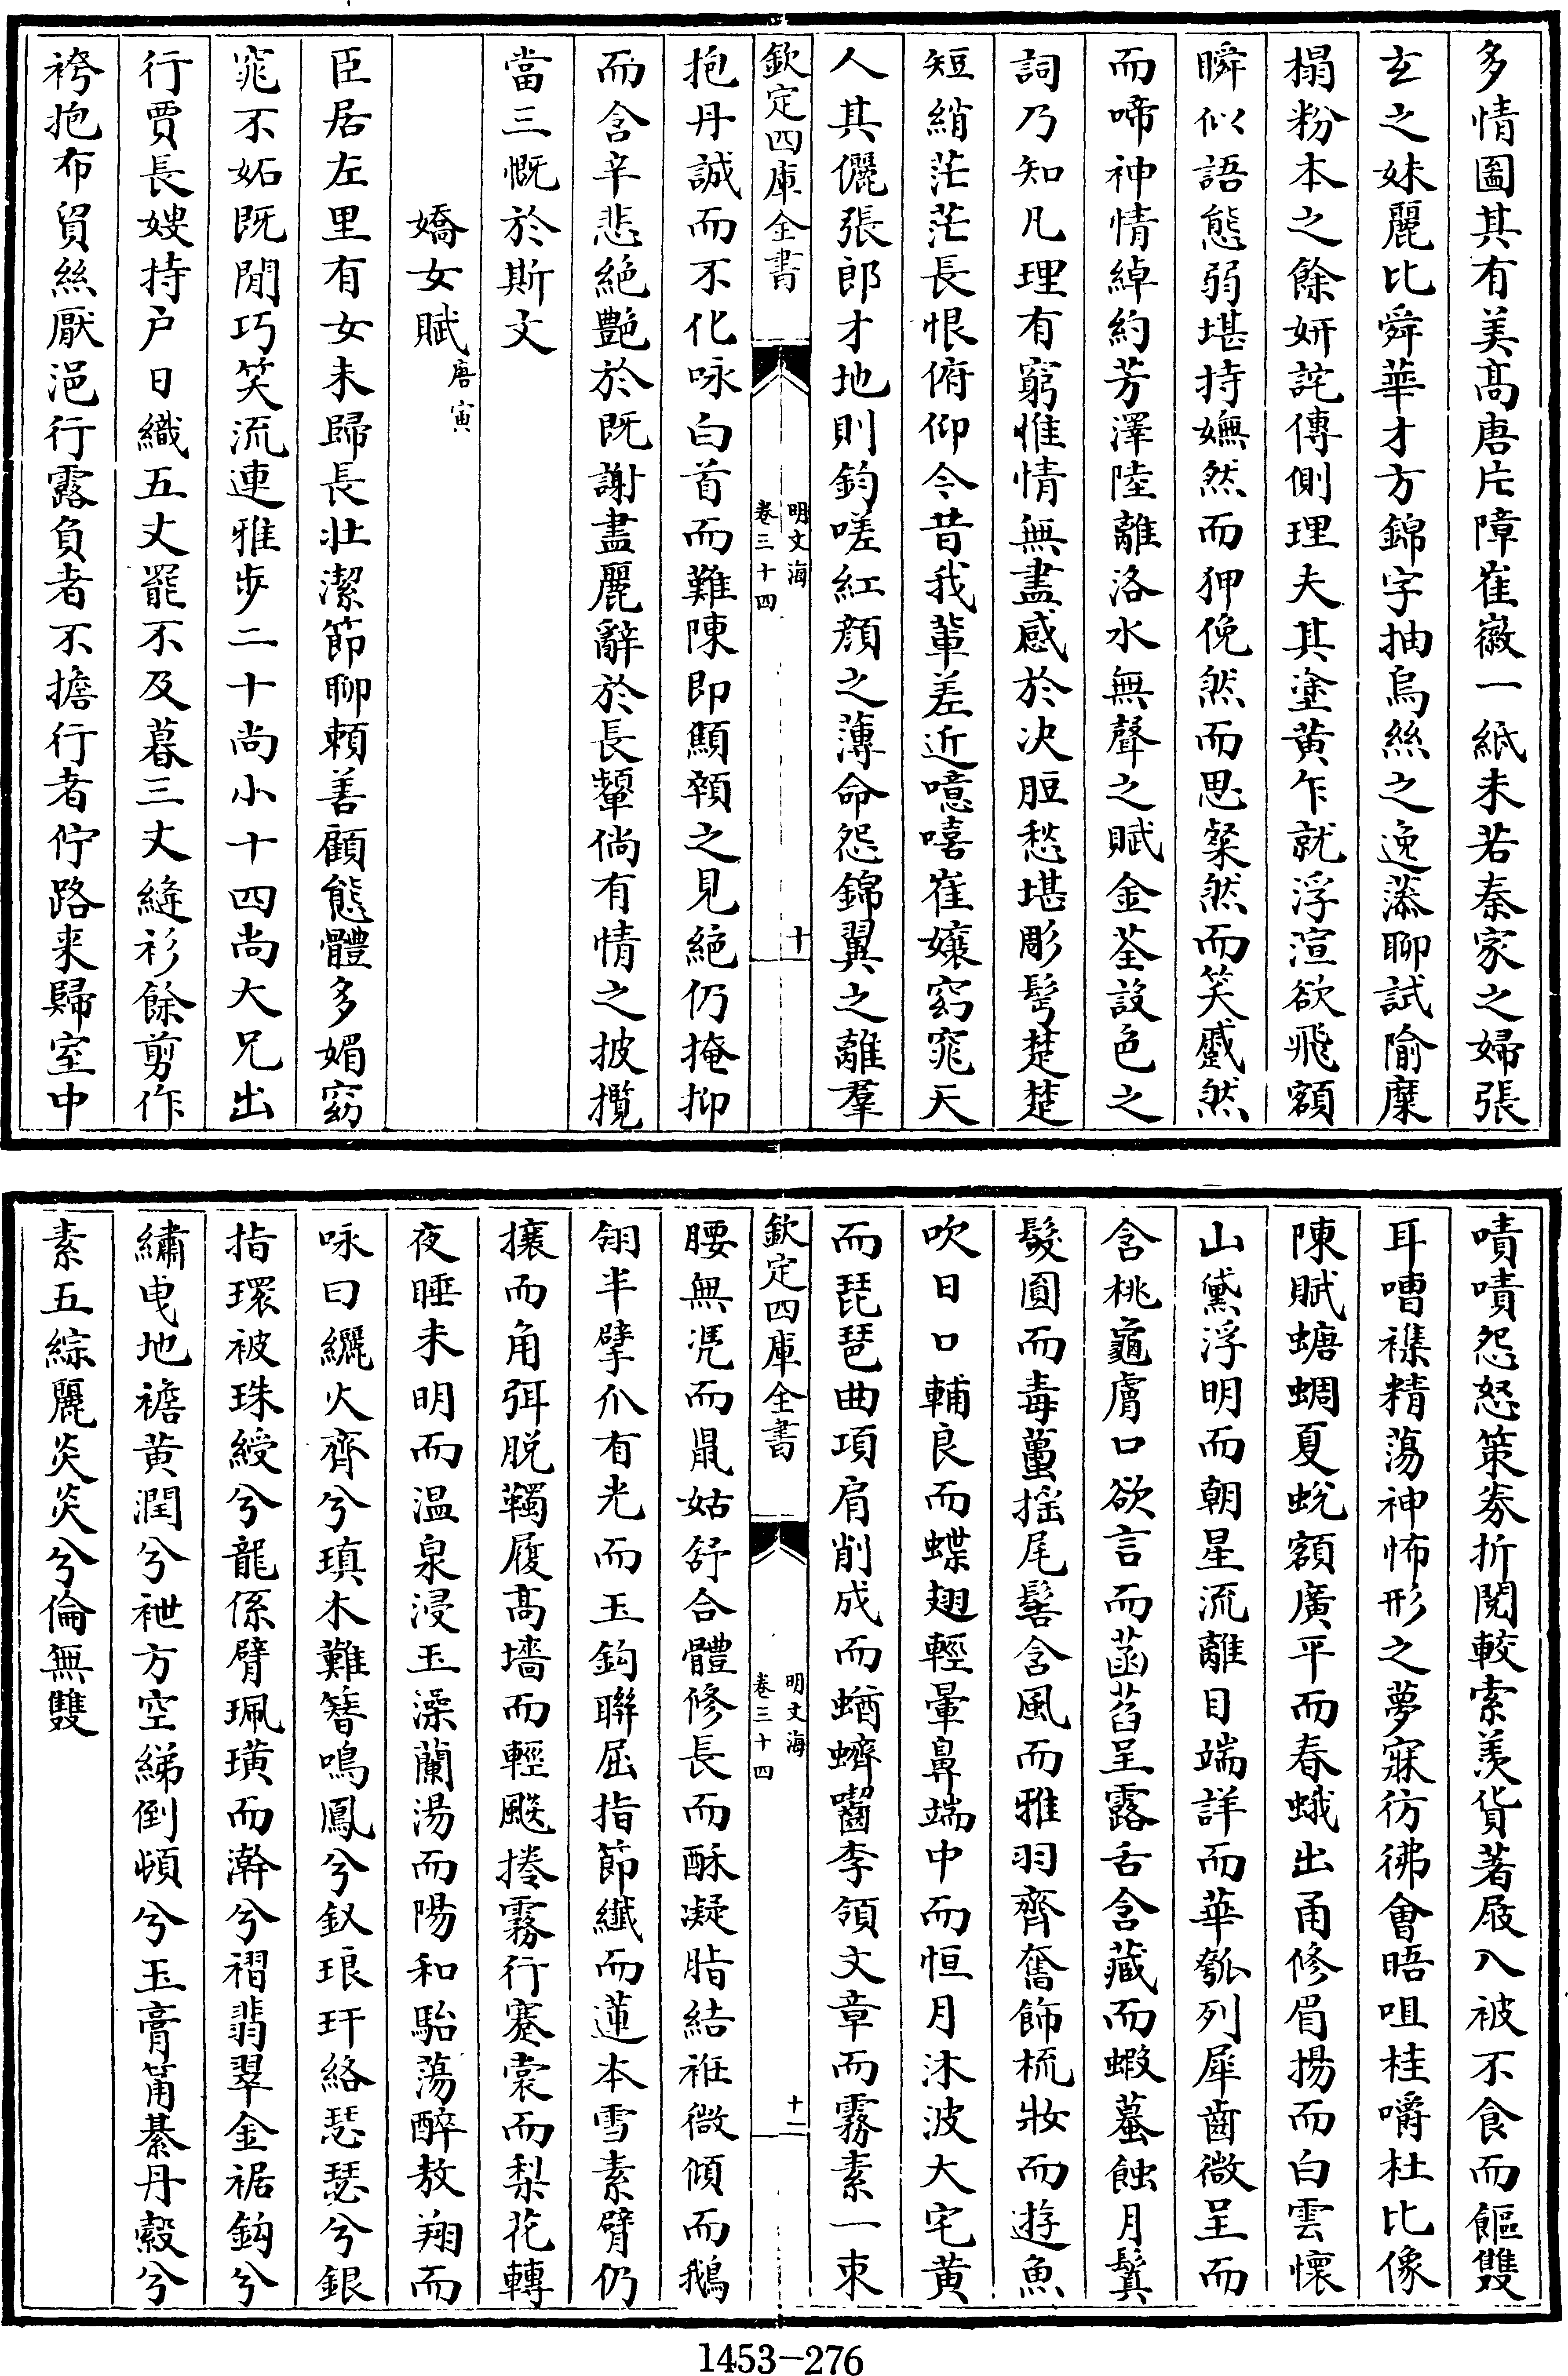 多情圖其有美高唐片障崔徽一紙未若秦家之婦張
玄之妹麗比舜華才方錦字抽烏絲之逸藻聊試隃糜
榻粉本之餘妍詫傳側理夫其塗黃乍就浮渲欲飛額
瞬似語態弱堪持嫵然而狎俛然而思粲然而笑蹙然
而啼神情綽約芳澤陸離洛水無聲之賦金荃設色之
詞乃知凡理有窮惟情無盡感於決脰愁堪彫髩楚楚
短綃茫茫長恨俯仰今昔我輩差近噫嘻崔孃窈窕天
人其儷張郎才地則鈞嗟紅顔之薄命怨錦翼之離羣
欽定四庫全書
明文海
卷三十四
十
抱丹誠而不化咏白首而難陳即顦顇之見絶仍掩抑
而含辛悲絶艶於既謝盡麗辭於長顰倘有情之披攬
當三慨於斯文
嬌女賦 唐寅
臣居左里有女未歸長壯潔節聊頼善顧態體多媚窈
窕不妬既閒巧笑流連雅步二十尚小十四尚大兄出
行賈長嫂持户日織五丈罷不及暮三丈縫衫餘剪作
袴抱布貿絲厭浥行露負者不擔行者佇路来歸室中
嘖嘖怨怒策券折閱較索羨貨著屐入被不食而饇雙
耳嘈襍精蕩神怖形之夢寐彷彿會晤咀桂嚼杜比像
陳賦螗蜩夏蛻額廣平而春蛾出甬修眉揚而白雲懷
山黛浮明而朝星流離目端詳而華瓠列犀齒微呈而
含桃龜膚口欲言而菡萏呈露舌含藏而蝦蟇蝕月鬒
髮圓而毒蠆揺尾髻含風而雅羽齊奮飾梳妝而遊魚
吹日口輔良而蝶翅輕暈鼻端中而恒月沐波大宅黄
而琵琶曲項肩削成而蝤蠐囓李領文章而霧素一束
欽定四庫全書
明文海
卷三十四
十一
腰無凴而鼠姑舒合體修長而酥凝脂結袵微傾而鵝
翎半擘爪有光而玉鈎聯屈指節纖而蓮本雪素臂仍
攘而角弭脱鞨履高墻而輕颷捲霧行蹇裳而梨花轉
夜睡未明而温泉浸玉澡蘭湯而陽和駘蕩醉敖翔而
咏曰纚火齊兮瑱木難簪鳴鳳兮釵琅玕絡瑟瑟兮銀
指環被珠綬兮龍係臂珮璜而澣兮褶翡翠金裾鈎兮
繡曵地襜黄潤兮袣方空綈倒頓兮玉膏筩綦丹縠兮
素五綜麗炎炎兮倫無雙
1453-276